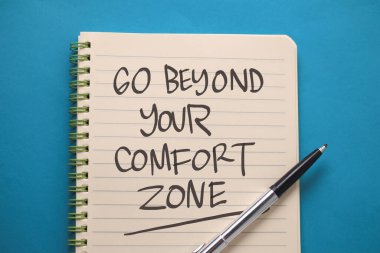 GO BEYOND
YOUR
COMFORT
ZONE